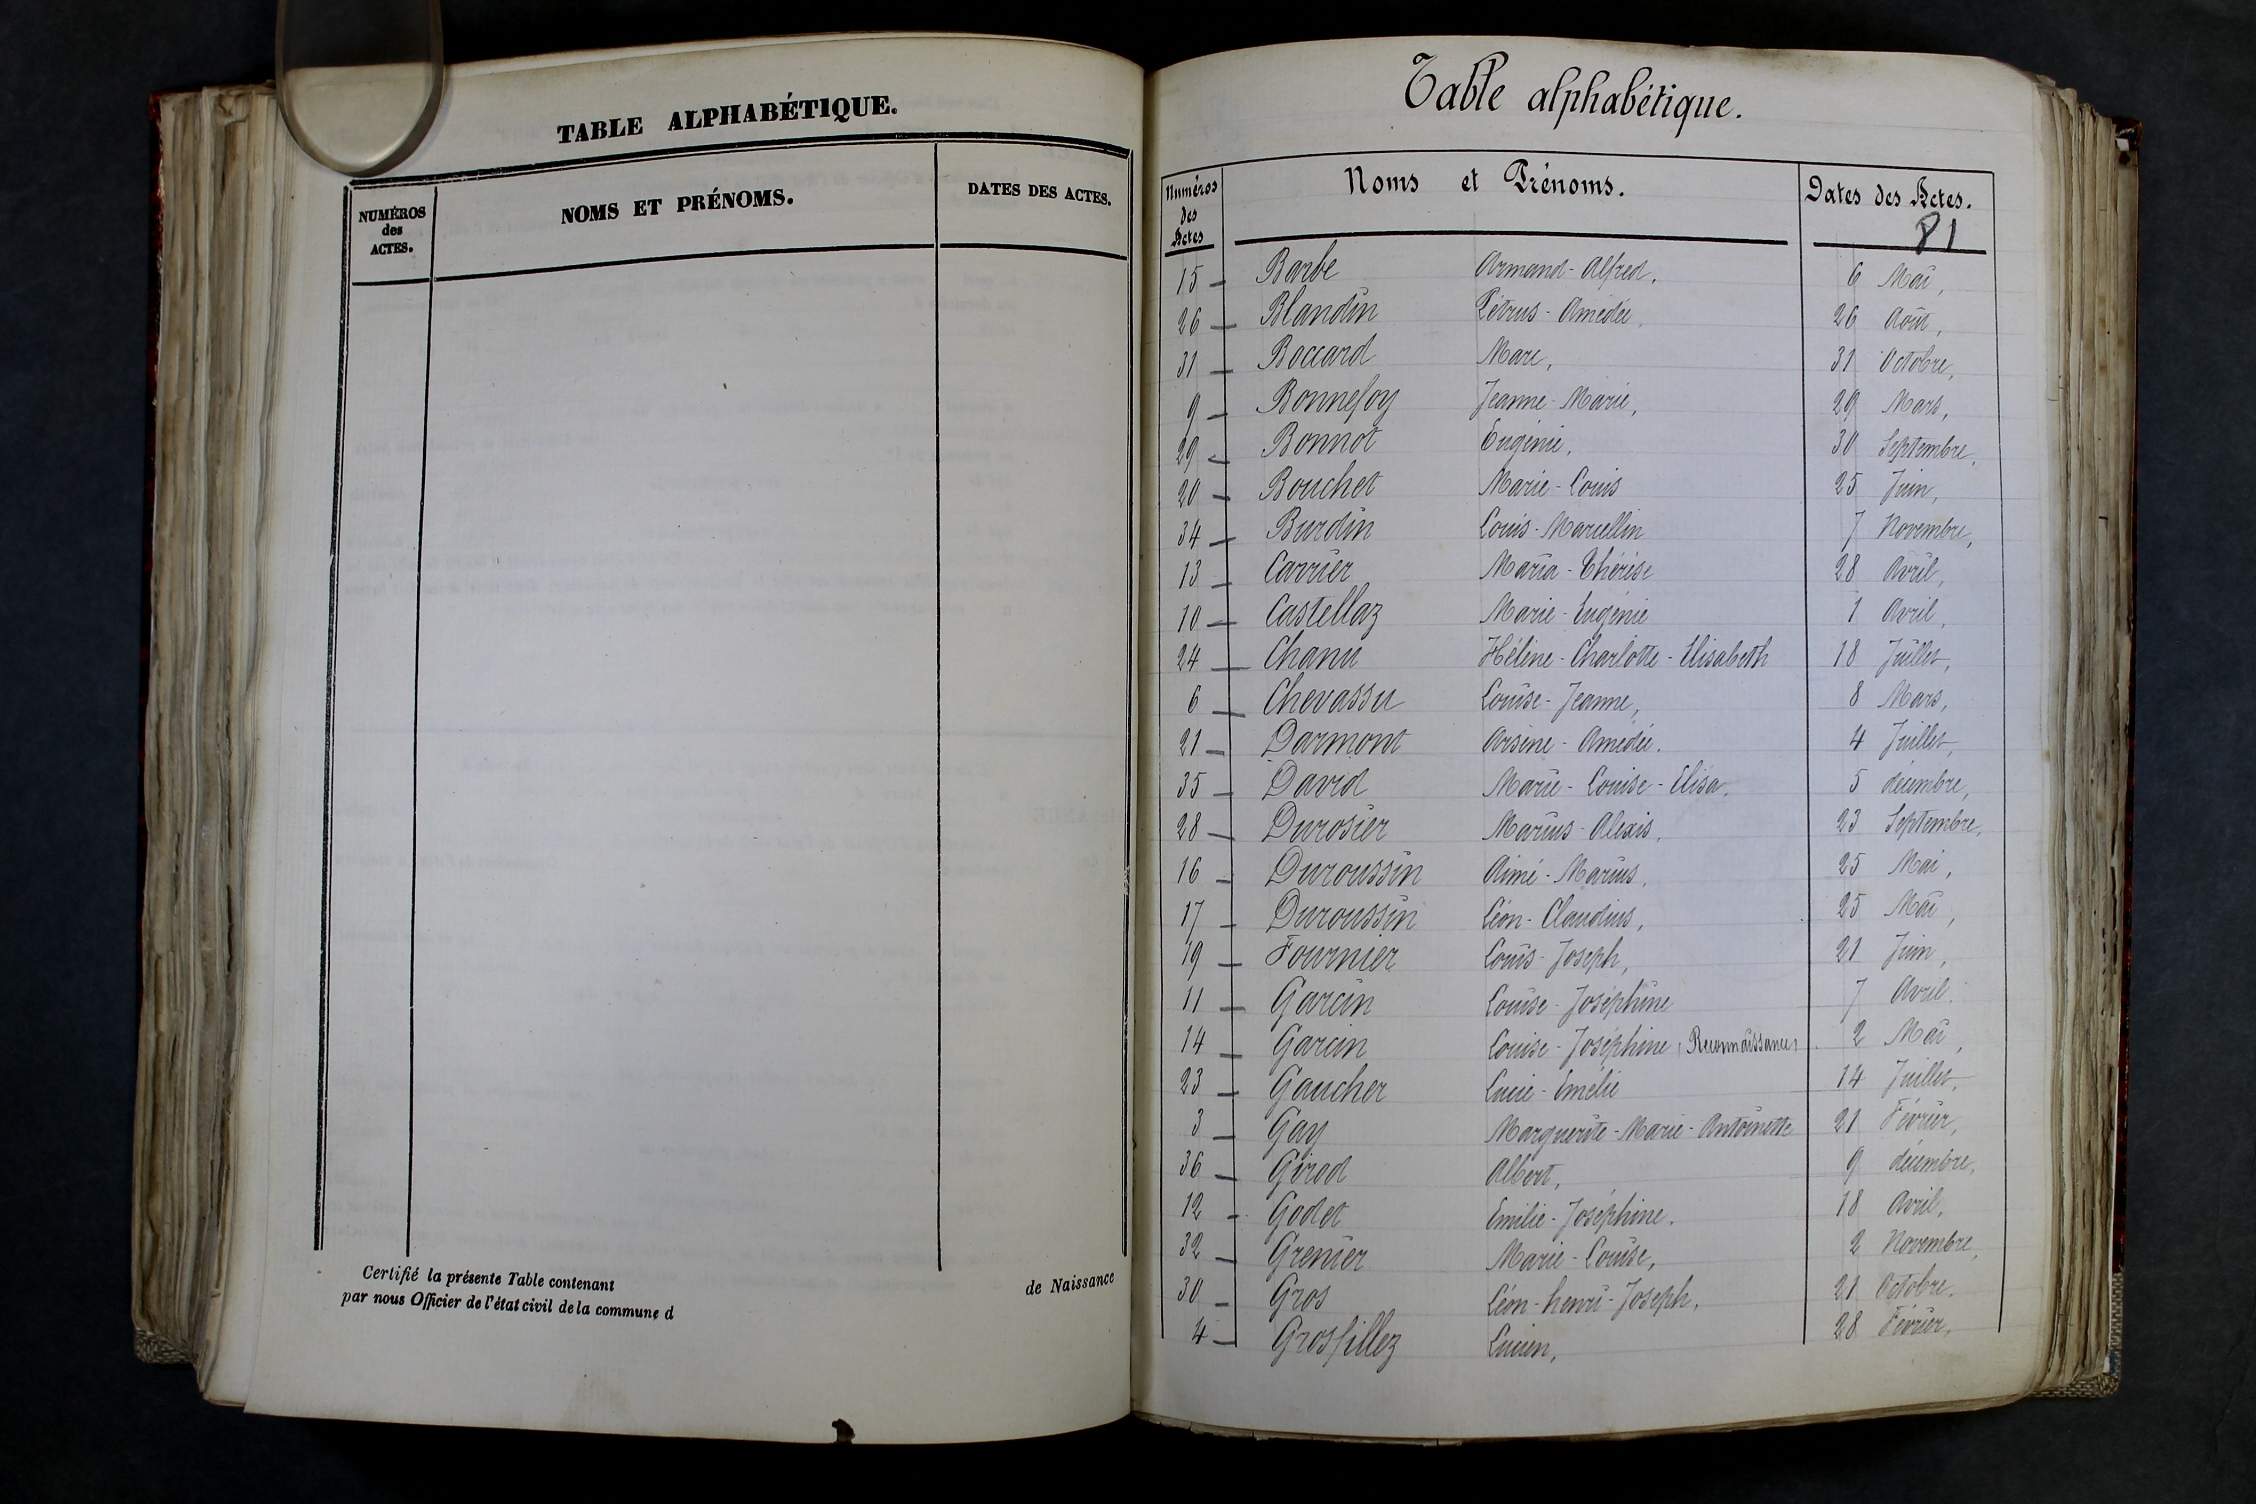 TABLE ALPHABÉTIQUE.
NUMÉROS des ACTES.
NOMS ET PRÉNOMS.
DATES DES ACTES.
Certifié la présente Table contenant de Naissance
par nous Officier de l'état civil de la commune d
Table alphabétique.
Numéros des Actes
Noms et Prénoms.
Dates des Actes.
81
15 - Barbe Armand - Alfred. 6 Mai,
26 - Blandin Pétrus - Amédée. 26 Août,
31 - Boccard Marc, 31 Octobre,
9 - Bonnefoy Jeanne - Marie, 29 Mars,
29 - Bonnot Eugénie, 30 Septembre,
20 - Bouchet Marie - Louis 25 Juin,
34 - Burdin Louis - Marcellin 7 Novembre,
13 - Carrier Maria - Thérèse 28 Avril,
10 - Castellaz Marie - Eugénie 1 Avril,
24 - Chanu Hélène - Charlotte - Elisabeth 18 Juillet,
6 - Chevassu Louise - Jeanne, 8 Mars,
21 - Darmont Arsène - Amédée. 4 Juillet,
35 - David Marie - Louise - Elisa. 5 décembre,
28 - Durosier Marius - Alexis, 23 Septembre,
16 - Duroussin Aimé - Marius, 25 Mai,
17 - Duroussin Léon - Claudius, 25 Mai,
19 - Fournier Louis - Joseph, 21 Juin,
11 - Garcin Louise - Joséphine 7 Avril.
14 - Garcin Louise - Joséphine (Reconnaissance) 2 Mai,
23 - Gaucher Lucie - Emélie 14 Juillet,
3 - Gay Marguerite - Marie - Antoinette 21 Février,
36 - Girod Albert, 9 décembre,
12 - Godet Emilie - Joséphine. 18 Avril,
32 - Grenier Marie - Louise, 2 Novembre,
30 - Gros Léon - henri - Joseph, 21 Octobre.
4 - Grosfillez Lucien, 28 Février,